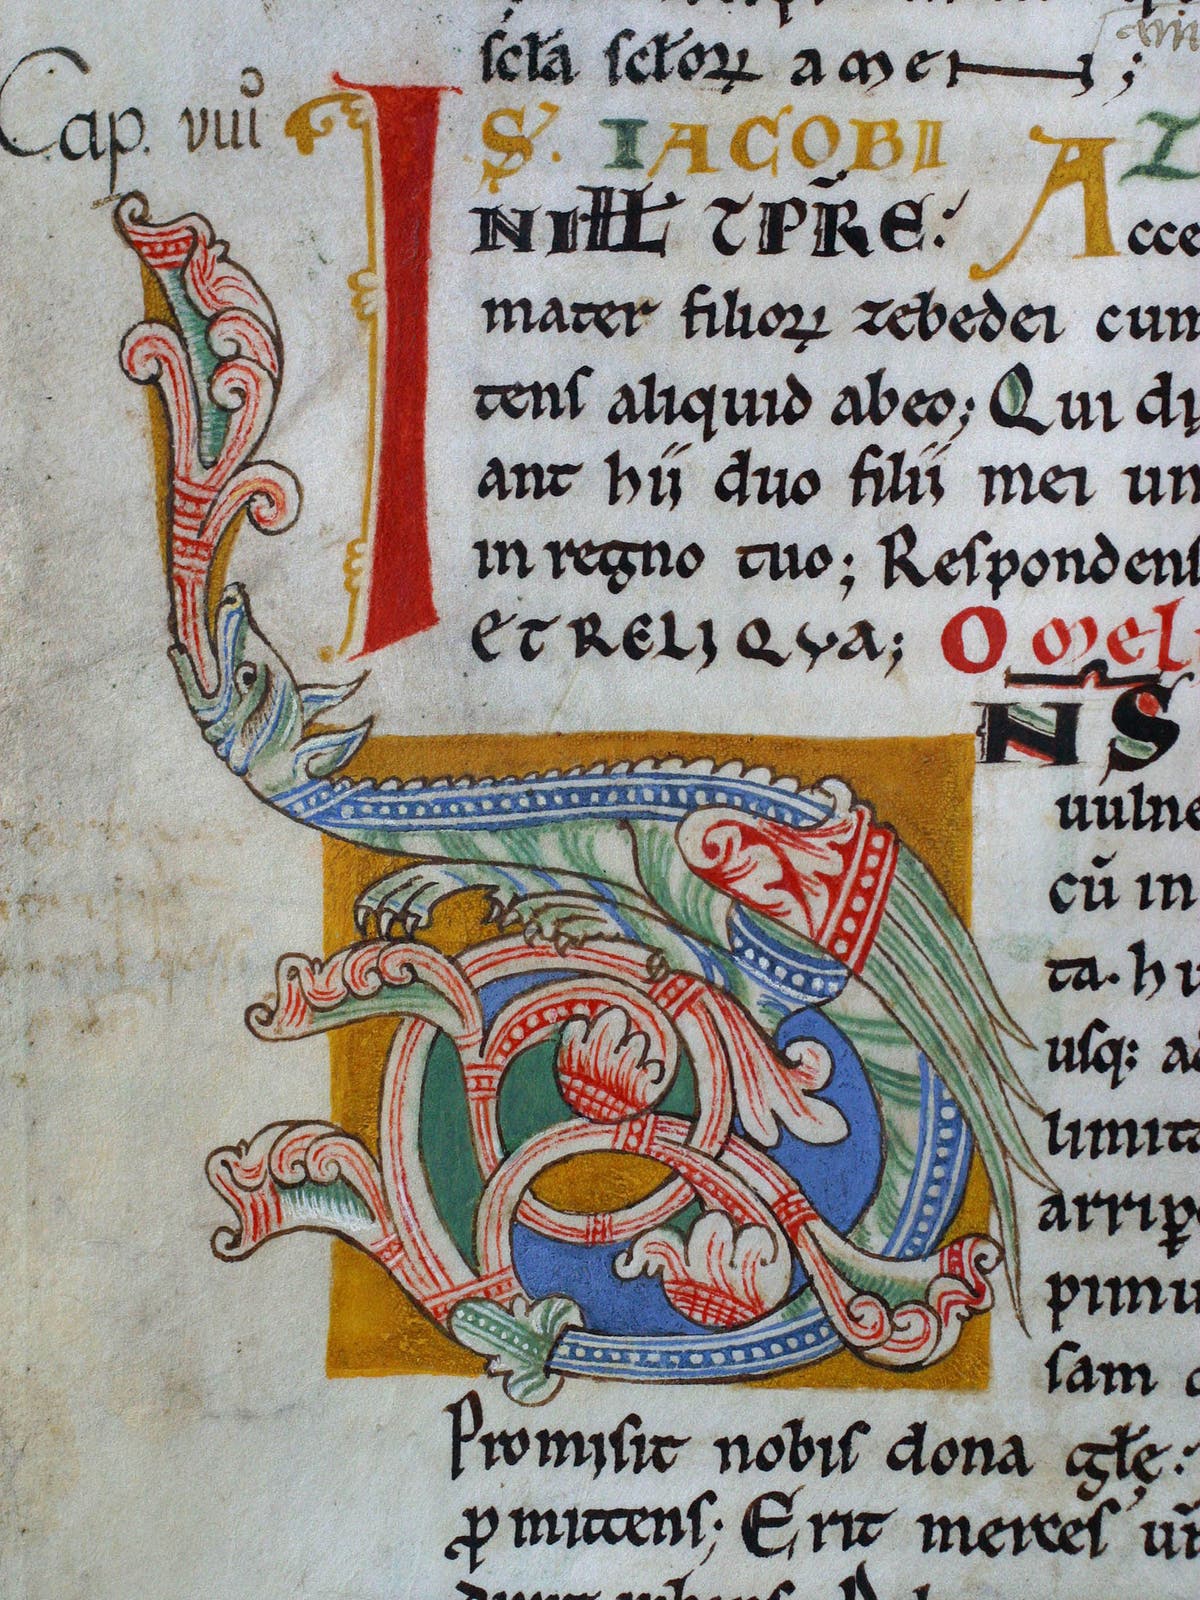 scła scłoꝝ amen;
Cap. viii
IS. IACOBI AZ
NIHIL ⁊ PR̃E: Acce
mater filioꝝ zebedei cum
tens aliquid abeo; Qui dı
ant hii duo filii mei un
in regno tuo; Respondens
ET RELIQVA; Omel
NS
uulne
cũ in
ta. hu
usq: ad
limita
arripe
pimu
sam
Promisit nobis dona głę:
ꝓmittens; Erit merces ũ